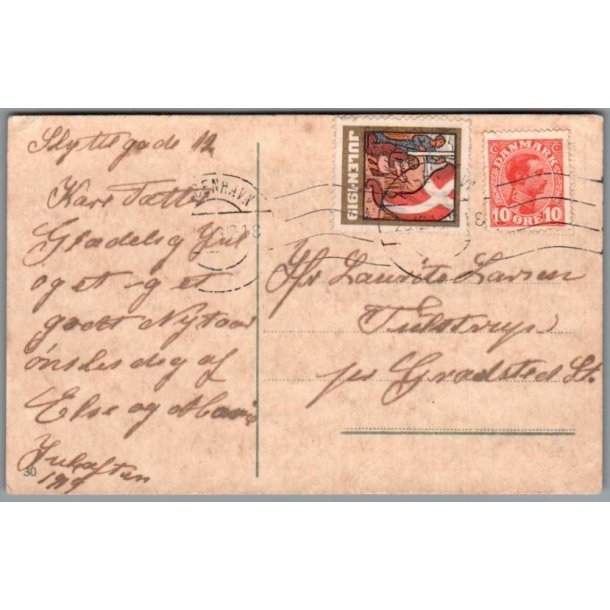 Slyttsgade 12
Kære
Glædelig Jul
og et
godt Nytaar
ønskes dig af
Else og
Juleaften
1919
30
JULEN·1919
DANMARK
10 ØRE 10
BENHAVN
Hr Laurits Larsen
Tulstrup
pr Gradsted St.